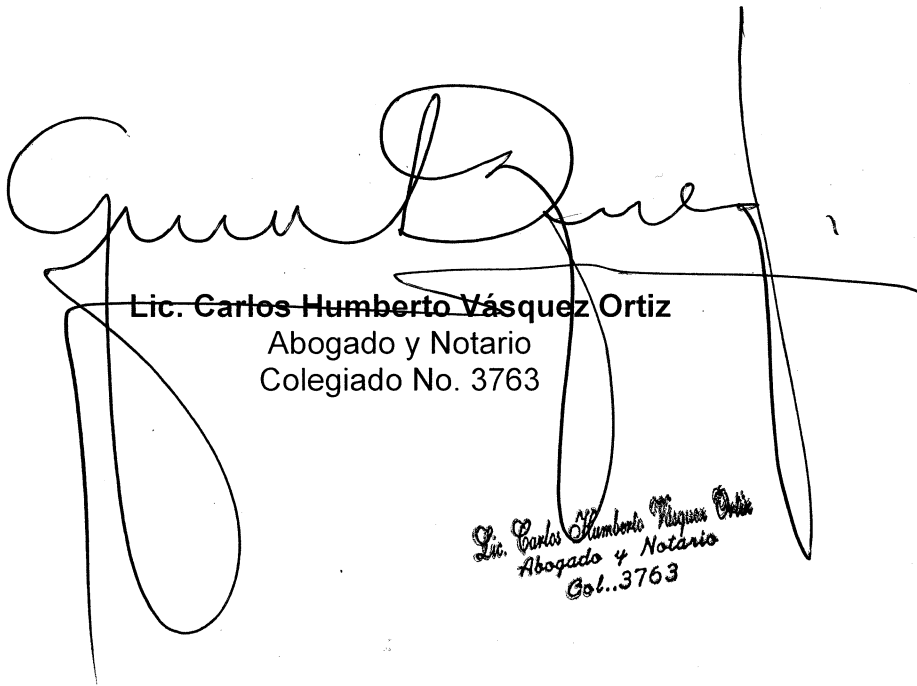 Lic. Carlos Humberto Vásquez Ortiz
Abogado y Notario
Colegiado No. 3763
Lic. Carlos Humberto Vásquez Ortiz
Abogado y Notario
Col..3763